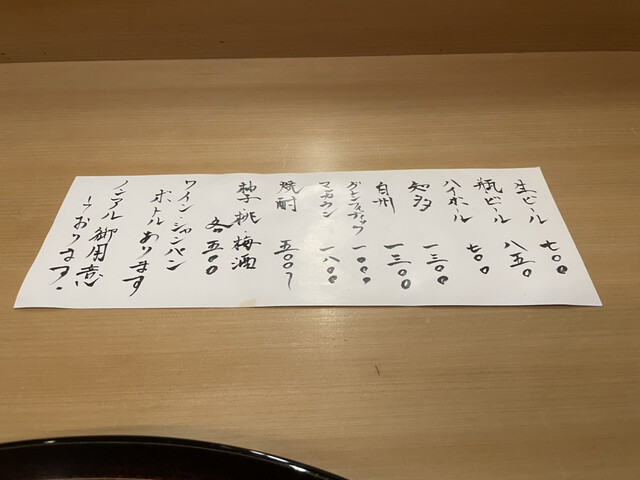 生ビール 七〇〇
瓶ビール 八五〇
ハイボール 七〇〇
知多 一三〇〇
白州 一三〇〇
グレンフィディック 一〇〇〇
マッカラン 一八〇〇
焼酎 五〇〇〜
柚子・桃・梅酒
各五〇〇
ワイン・シャンパン
ボトルあります
ノンアル御用意
しております。